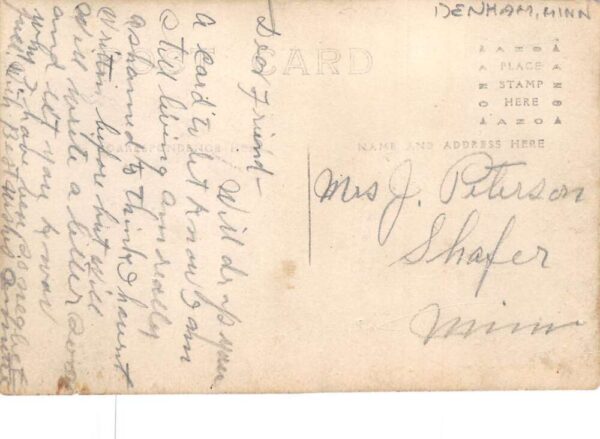 DENHAM, MINN
POST CARD
AZO
PLACE
STAMP
HERE
AZO
CORRESPONDENCE HERE
NAME AND ADDRESS HERE
Dear Friend—
Will drop you
a card to let know I am
still living am really
ashamed to think I havent
written before but will
will write a letter soon
and let you know
why I have been so neglect
full with Best wishes
Mrs J. Peterson
Shafer
Minn